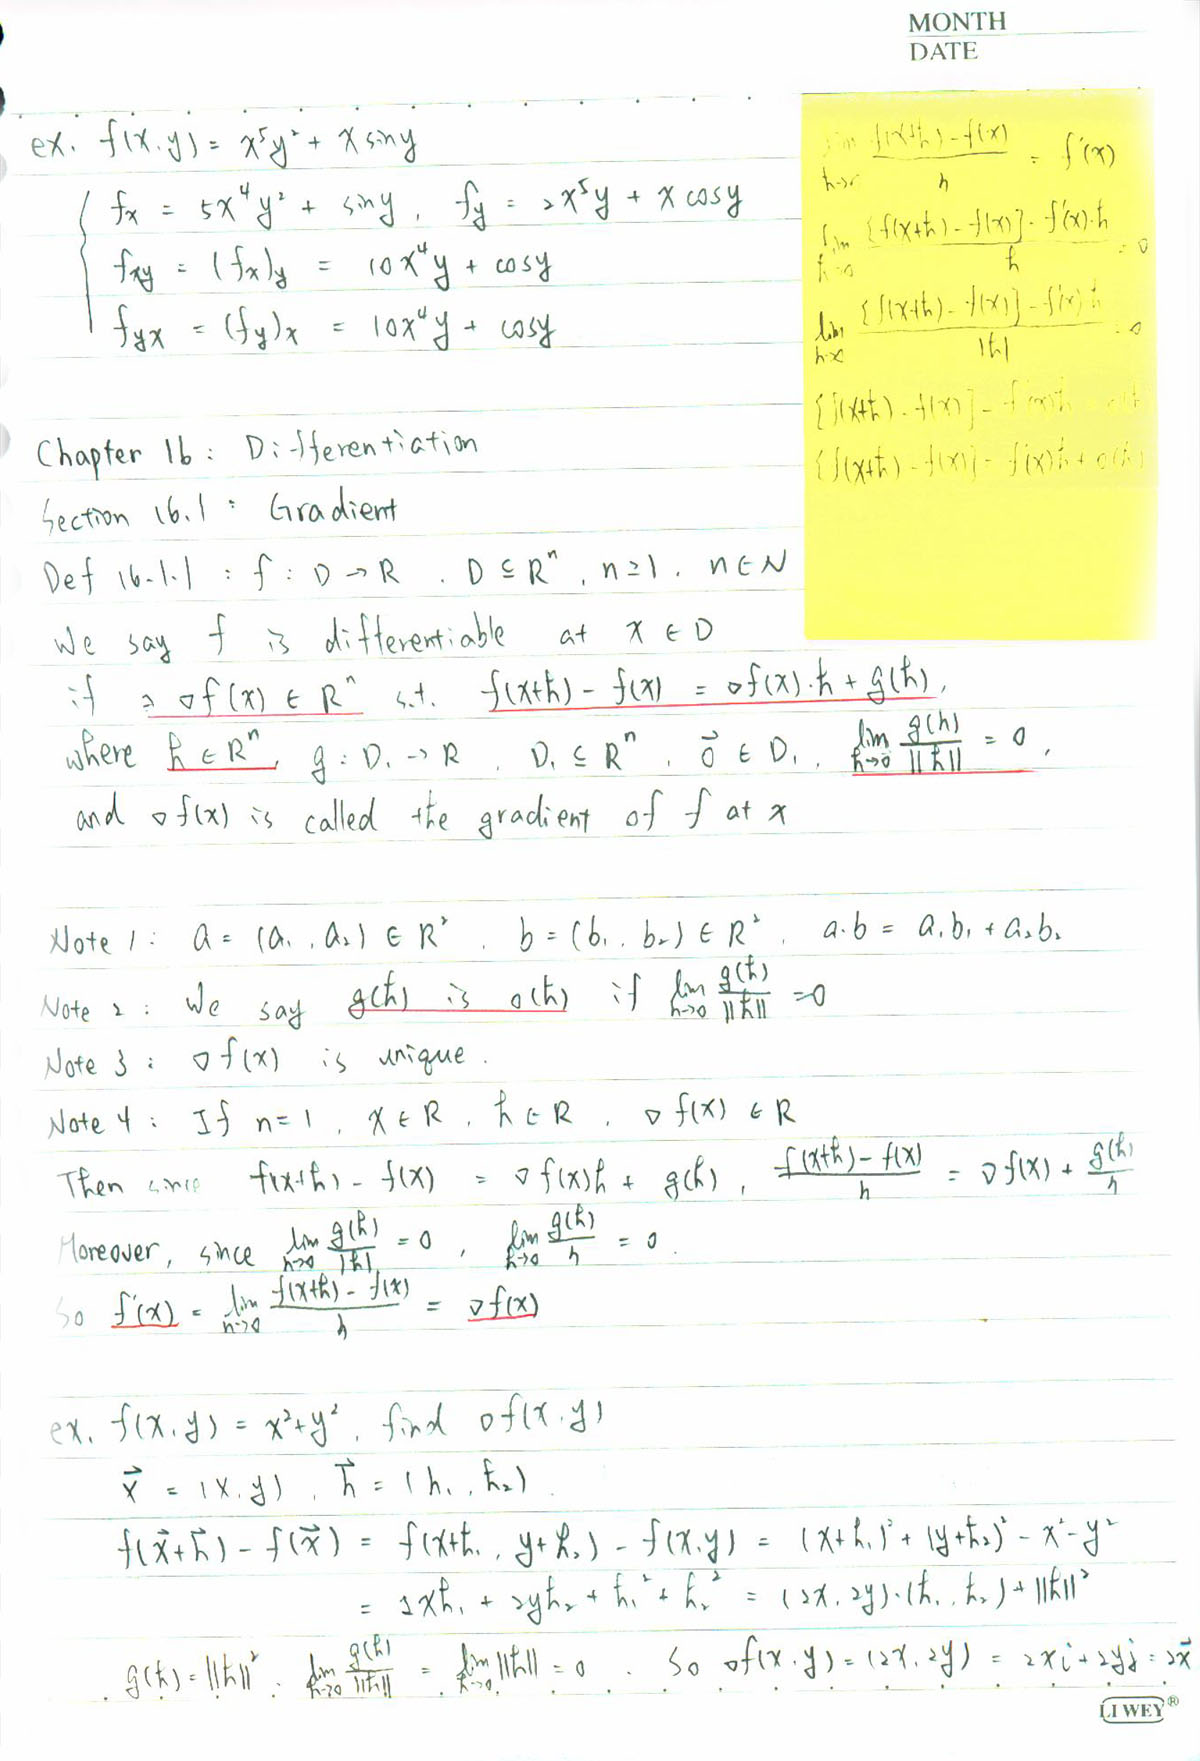 MONTH
DATE
ex. f(x,y) = x⁵y² + x siny
fx = 5x⁴y² + siny, fy = 2x⁵y + x cosy
fxy = (fx)y = 10x⁴y + cosy
fyx = (fy)x = 10x⁴y + cosy
lim h→0 (f(x+h) - f(x))/h = f'(x)
lim h→0 ([f(x+h) - f(x)] - f'(x)·h)/h = 0
lim h→0 ([f(x+h) - f(x)] - f'(x)h)/|h| = 0
[f(x+h) - f(x)] - f'(x)h = o(h)
[f(x+h) - f(x)] - f'(x)h + o(h)
Chapter 16 : Differentiation
Section 16.1 : Gradient
Def 16.1.1 : f : D → R, D ⊆ Rⁿ, n ≥ 1, n ∈ N
We say f is differentiable at x ∈ D
if ∃ ∇f(x) ∈ Rⁿ s.t. f(x+h) - f(x) = ∇f(x)·h + g(h),
where h ∈ Rⁿ, g : D₁ → R, D₁ ⊆ Rⁿ, 0⃗ ∈ D₁, lim h→0 g(h)/||h|| = 0,
and ∇f(x) is called the gradient of f at x
Note 1 : a = (a₁, a₂) ∈ R², b = (b₁, b₂) ∈ R², a·b = a₁b₁ + a₂b₂
Note 2 : We say g(h) is o(h) if lim h→0 g(h)/||h|| = 0
Note 3 : ∇f(x) is unique.
Note 4 : If n=1, x ∈ R, h ∈ R, ∇f(x) ∈ R
Then since f(x+h) - f(x) = ∇f(x)h + g(h), (f(x+h) - f(x))/h = ∇f(x) + g(h)/h
Moreover, since lim h→0 g(h)/|h| = 0, lim h→0 g(h)/h = 0.
So f'(x) = lim h→0 (f(x+h) - f(x))/h = ∇f(x)
ex. f(x,y) = x²+y², find ∇f(x,y)
x⃗ = (x,y), h⃗ = (h₁, h₂).
f(x⃗+h⃗) - f(x⃗) = f(x+h₁, y+h₂) - f(x,y) = (x+h₁)² + (y+h₂)² - x² - y²
= 2xh₁ + 2yh₂ + h₁² + h₂² = (2x, 2y)·(h₁, h₂) + ||h||²
g(h) = ||h||². lim h→0 g(h)/||h|| = lim h→0 ||h|| = 0. So ∇f(x,y) = (2x, 2y) = 2xi + 2yj = 2x⃗
LI WEY®